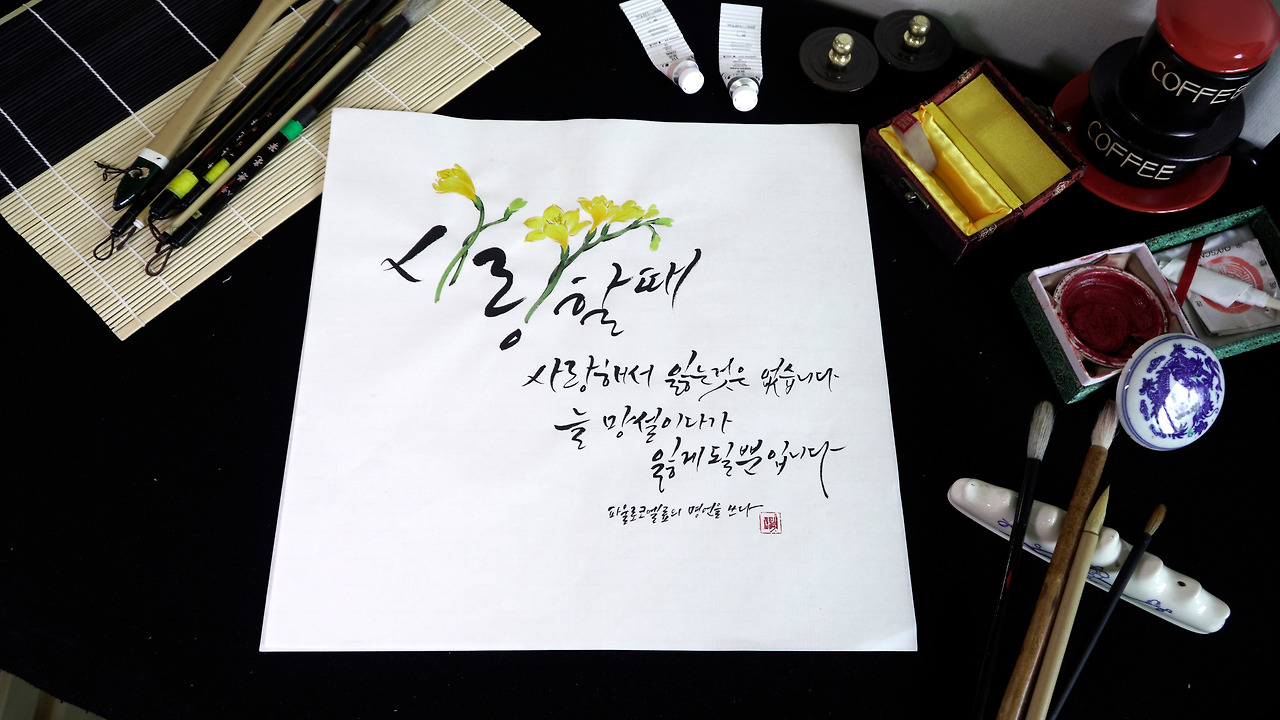 사랑할때
사랑해서 잃는것은 없습니다
늘 망설이다가
잃게될뿐입니다
파울로코엘료의 명언을 쓰다
COFFEE
COFFEE